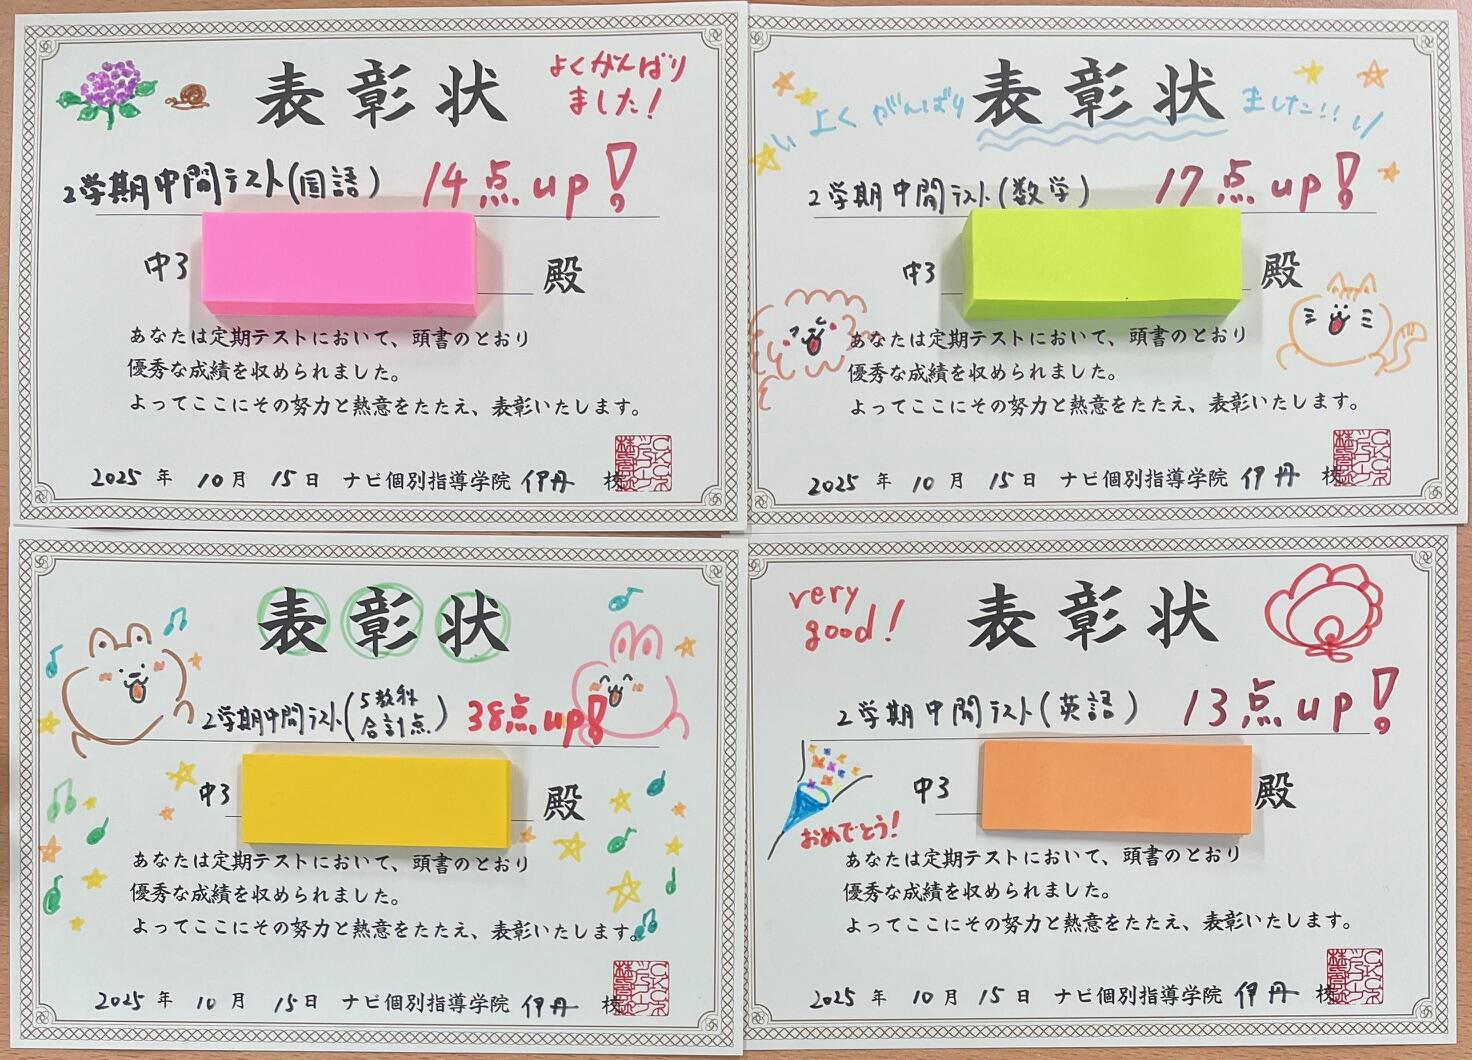 表彰状
よくがんばり
ました!
2学期中間テスト(国語) 14点up!
中3 殿
あなたは定期テストにおいて、頭書のとおり
優秀な成績を収められました。
よってここにその努力と熱意をたたえ、表彰いたします。
2025年10月15日 ナビ個別指導学院 伊丹 校
よくがんばり 表彰状 ました!!
2学期中間テスト(数学) 17点up!
中3 殿
あなたは定期テストにおいて、頭書のとおり
優秀な成績を収められました。
よってここにその努力と熱意をたたえ、表彰いたします。
2025年10月15日 ナビ個別指導学院 伊丹 校
表彰状
2学期中間テスト(5教科合計点) 38点up!
中3 殿
あなたは定期テストにおいて、頭書のとおり
優秀な成績を収められました。
よってここにその努力と熱意をたたえ、表彰いたします。
2025年10月15日 ナビ個別指導学院 伊丹 校
very
good!
表彰状
2学期中間テスト(英語) 13点up!
中3 殿
おめでとう!
あなたは定期テストにおいて、頭書のとおり
優秀な成績を収められました。
よってここにその努力と熱意をたたえ、表彰いたします。
2025年10月15日 ナビ個別指導学院 伊丹 校